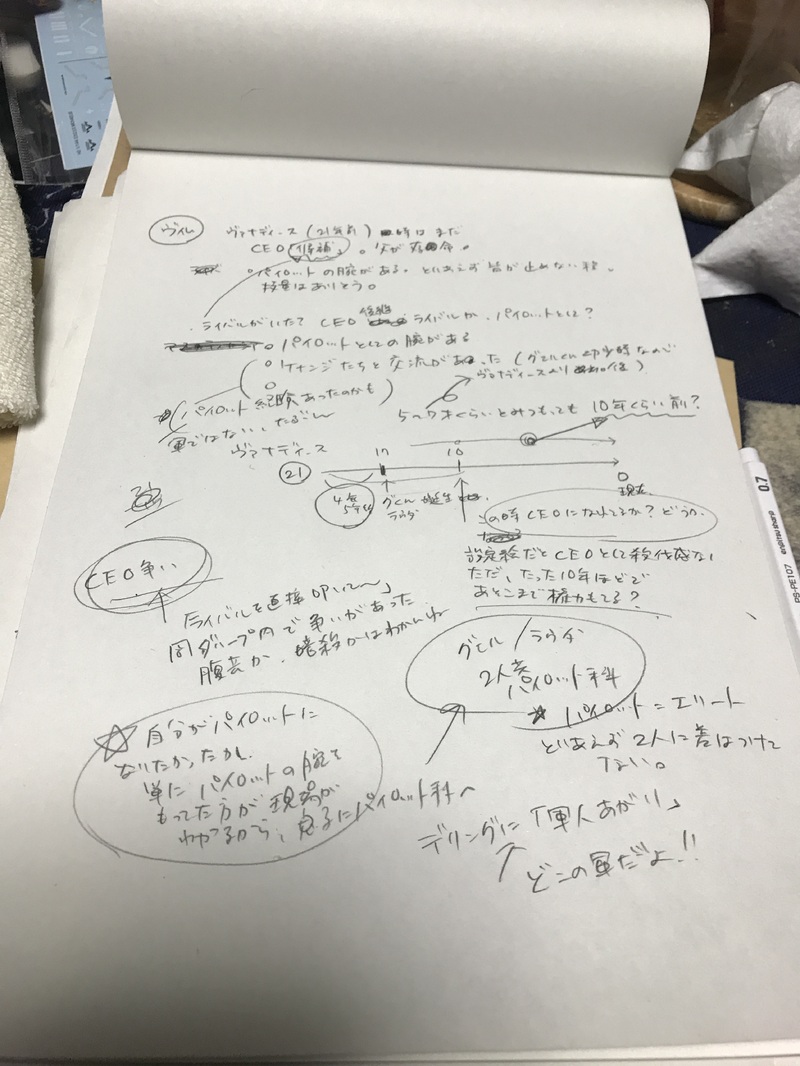 ヴィム
ヴァナディース(21年前) 時はまだ
CEO「候補」。父が存命。
○パイロットの腕がある。とりあえず皆が止めない程。
技量はありそう。
ライバルがいた? CEO候補ライバルか、パイロットとして?
○パイロットとしての腕がある
○ケナンジたちと交流があった(グエルくん幼少時なんで
ヴァナディースより後)
○
(パイロット経験あったのかも)
軍ではない、たぶん
5〜7才くらいとみつもっても 10年くらい前?
ヴァナディース
21
17
10
0
現在
4年
5年
グエルくん誕生
ラウダ
この時CEOになれてるか?どうか
設定絵だとCEOとして殺伐感ない
ただ、たった10年ほどで
あそこまで権力もてる?
CEO争い
ライバルを直接
同グループ内で争いがあった
腹芸か、暗殺かはわかんね
グエル/ラウダ
2人共
パイロット科
☆パイロット=エリート
とりあえず2人に差はつけて
ない。
☆自分がパイロットに
なりたかったかし
単にパイロットの腕を
もってた方が現場が
わかるから、息子にパイロット科へ
デリングに「軍人あがり」
どこの軍だよ!!
0.7
PS-PE107